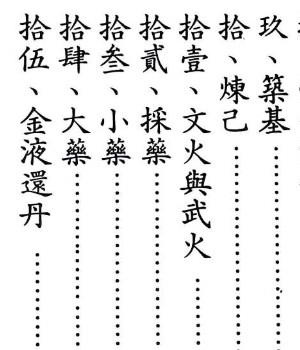 玖、築基
拾、煉己
拾壹、文火與武火
拾貳、採藥
拾叁、小藥
拾肆、大藥
拾伍、金液還丹